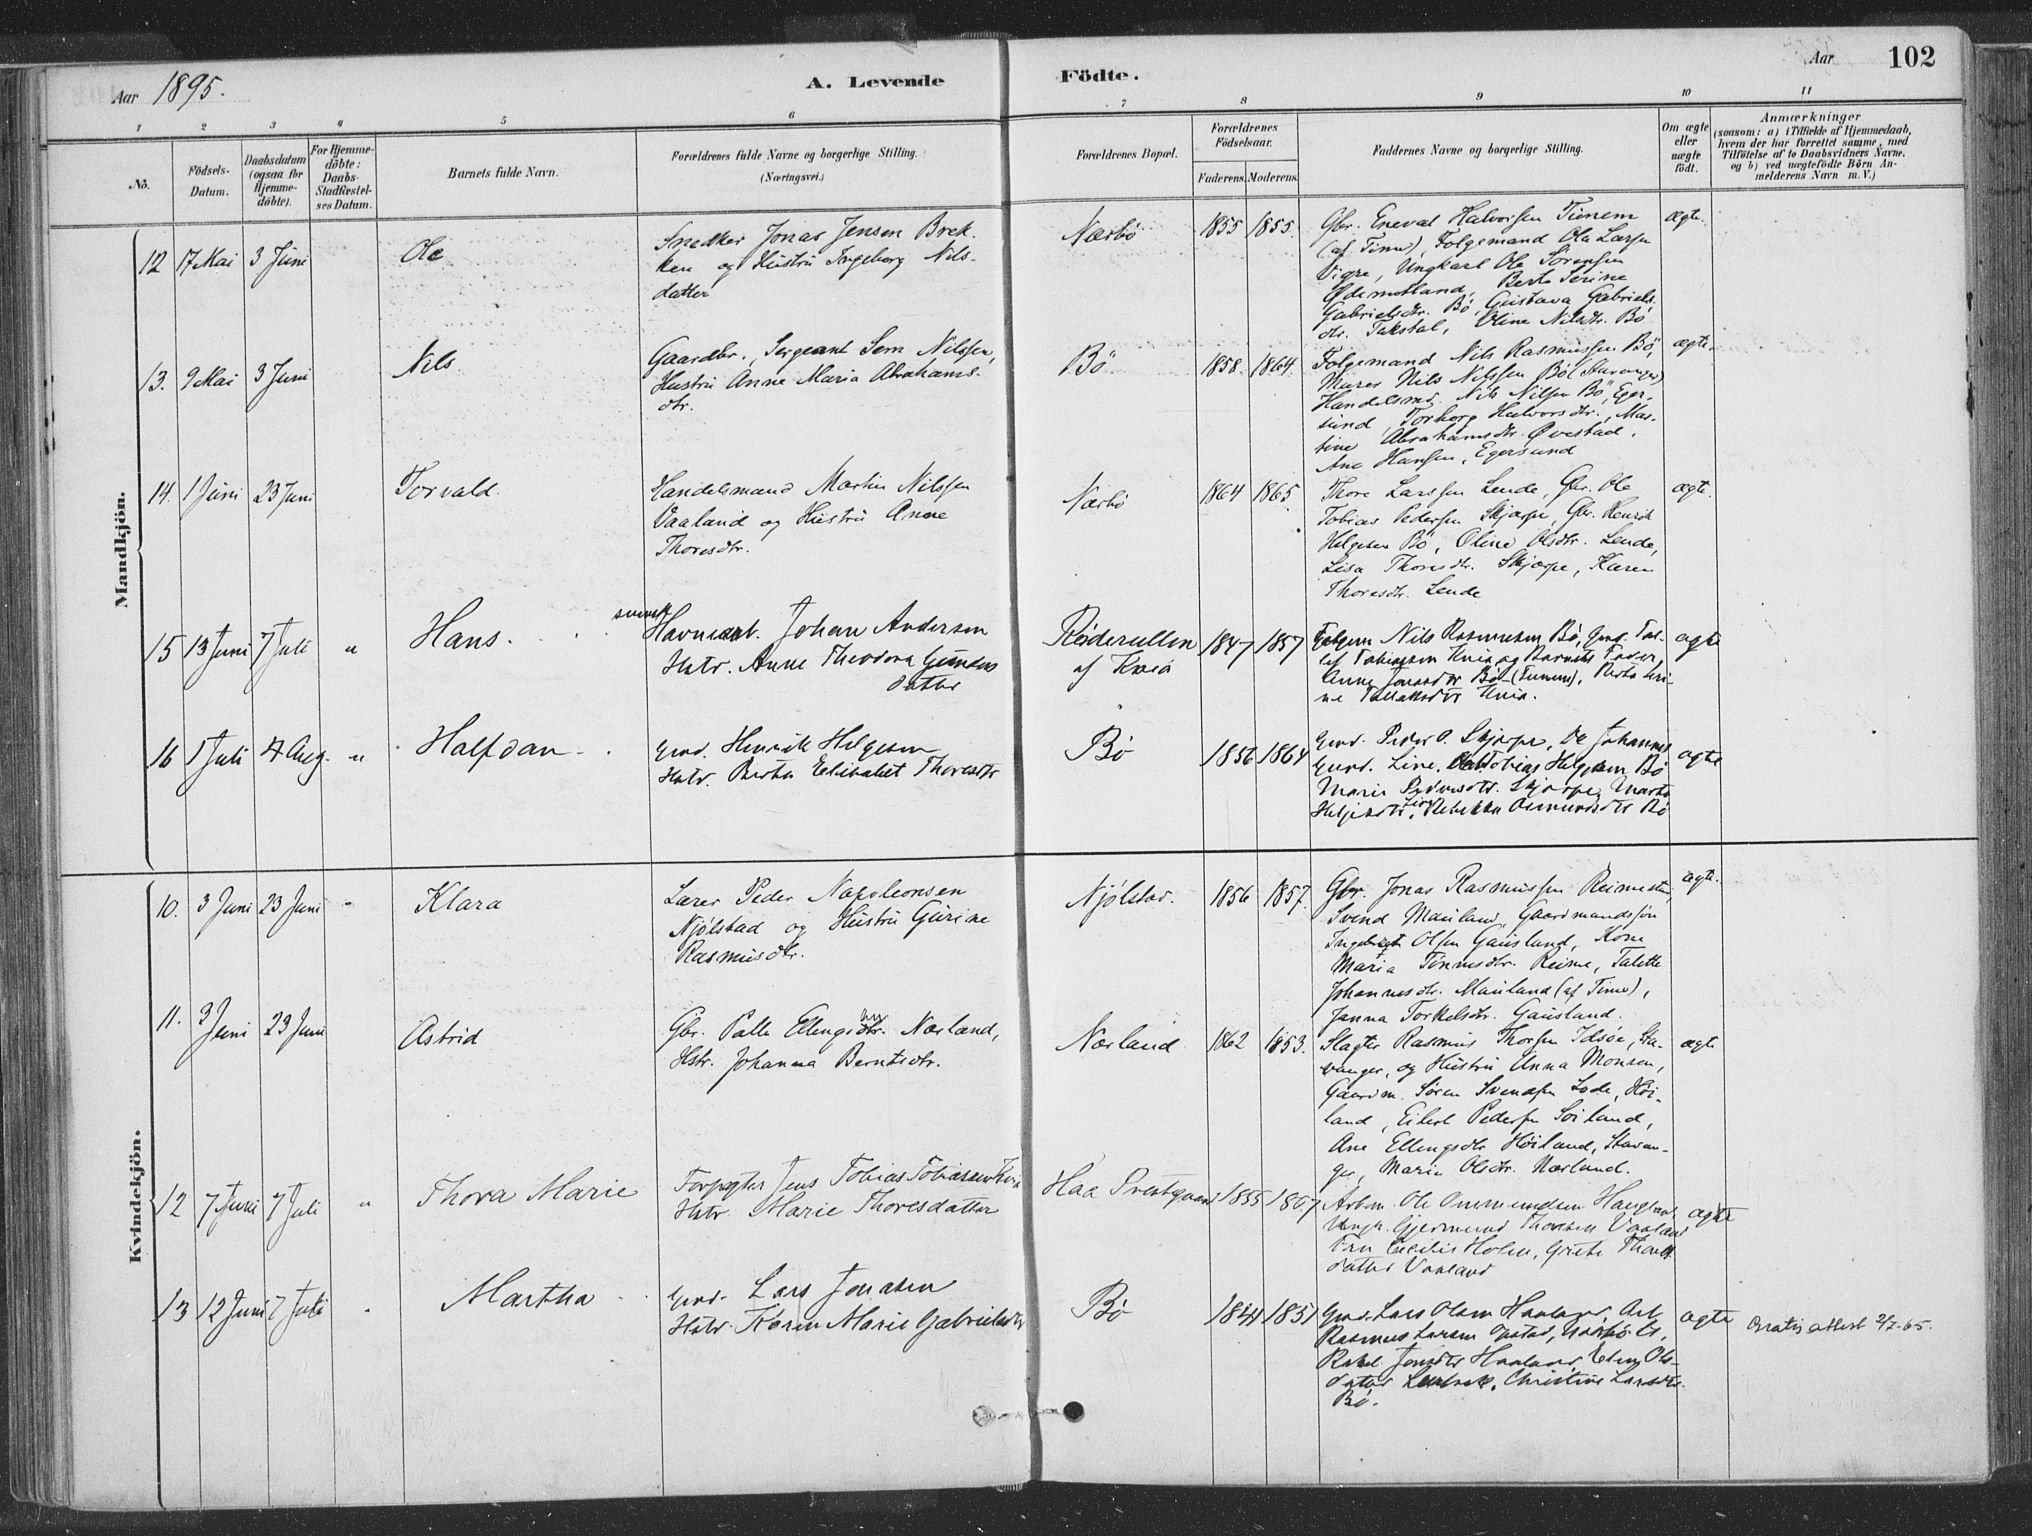 Aar 1895.
A. Levende
Födte.
Aar
102
1 2 3 4 5 6 7 8 9 10 11
No.
Födsels-
Datum.
Daabsdatum
(ogsaa for
Hjemme-
döbte).
For Hjemme-
döbte:
Daabs-
Stadfæstel-
ses Datum.
Barnets fulde Navn.
Forældrenes fulde Navne og borgerlige Stilling.
(Næringsvei.)
Forældrenes Bopæl.
Forældrenes
Födselsaar.
Faderens. Moderens.
Faddernes Navne og borgerlige Stilling.
Om ægte
eller
uægte
födt.
Anmærkninger
(saasom: a) i Tilfælde af Hjemmedaab,
hvem der har forrettet samme, med
Tilföielse af to Daabsvidners Navne,
og b) ved uægtefödte Börn An-
melderens Navn m. V.)
Mandkjön.
12 17 Mai 3 Juni
Ole
Snedker Jonas Jensen Brek-
ken og Hustru Ingeborg Nils-
datter
Nærbø
1855 1855.
Gbr. Eneval Halvorsen Tunem
(af Time), Folgemand Ola Larsen
Vigre, Ungkarl Ole Sørensen
Ødemotland, Berta Serine
Gabrielsdtr. Bø, Gustava Gabriels-
dtr. Takstal, Oline Nilsdtr. Bø
ægte.
13. 9 Mai 3 Juni
Nils
Gaardbr., Sergeant Sem Nilssen,
Hustru Anne Maria Abrahams-
dtr.
Bø
1858. 1864.
Folgemand Nils Rasmussen Bø,
Murer Nils Nilssen Bø (Stavanger)
Handelsmd. Nils Nilsen Bø, Eger-
sund, Torborg Halvorsdtr., Mar-
tine Abrahamsdtr. Øvestad,
Ane Hansen, Egersund
ægte.
14. 1 Juni 23 Juni
Torvald.
Handelsmand Martin Nilssen
Vaaland og Hustru Anne
Thoresdtr.
Nærbø
1864 1865.
Thore Larssen Lende, Gbr. Ole
Tobias Pedersen Skjærpe, Gbr. Henrik
Helgesen Bø, Oline Olsdtr. Lende,
Lisa Thoresdtr. Skjærpe, Karen
Thoresdtr. Lende
ægte.
15 13 Juni 7 Juli "
Hans.
svensk
Havnearb. Johan Andersen
Hstr. Anne Theodora Gundersdatter
Røderullen
af Kviá
1847 1857
Folgem Nils Rasmussen Bø,
Tobiassen Kvia og Barnets Fader,
Anne Jonasdtr Bø (Tunem), Berta Seri-
ne Kvia.
ægte
16 1 Juli 4 Aug. "
Halfdan
Gmd. Henrik Helgesen
Hstr. Berta Elisabet Thoresdtr
Bø
1856 1864
Gmd. Peder O. Skjærpe, Do Johannes
Gmd. Line, Tobias Helgesen Bø
Marie Pedersdtr. Skjærpe, Marta
Helgesdtr Line, Rebekka Osmundsdtr Bø
ægte
Kvindekjön.
10. 3 Juni 23 Juni "
Klara
Lærer Peder Napoleonsen
Njølstad og Hustru Gurine
Rasmusdtr.
Njølstad.
1856 1857.
Gbr. Jonas Rasmussen Reimestad,
Svend Mauland, Gaardmandssøn
Ingebregt Olsen Gausland, Kone
Maria Tønnesdtr. Reime, Talette
Johannesdtr. Mauland (af Time),
Janna Torkelsdtr. Gausland.
ægte.
11. 3 Juni 23 Juni
Astrid
Gbr. Palle Ellings Nærland,
Hstr. Johanna Berntsdtr.
Nærland
1862 1853.
Slagter Rasmus Thorsen Idsøe, Sta-
vanger, og Hustru Anna Monsen,
Gaardm. Søren Svendsen Lode, Høi-
land, Eilert Pedersen Soiland,
Ane Ellingsdtr Høiland, Stavan-
ger, Marie Olsdtr. Nærland.
ægte
12 7 Juni 7 Juli "
Thora Marie
Forpagter Jens Tobias Tobiassen Kvia
Hstr. Marie Thoresdatter
Haa Prestegaard
1855 1867
Arbm. Ole Ommundsen Haugland
Ungk. Gjermund Thorsen Vaaland
Fru Cecilie Holen, Grete Thores-
datter Vaaland
ægte
13 12 Juni 7 Juli "
Martha
Gmd. Lars Jonasen
Hstr. Karen Marie Gabrielsdtr
Bø
1844 1851
Gmd. Lars Olsen Haaland,
Rasmus Larsen Opstad,
Rakel Jonsdtr Haaland, Elen Ols-
datter, Christine Larsdtr.
Bø.
ægte
Gratis attest 2/7-65.